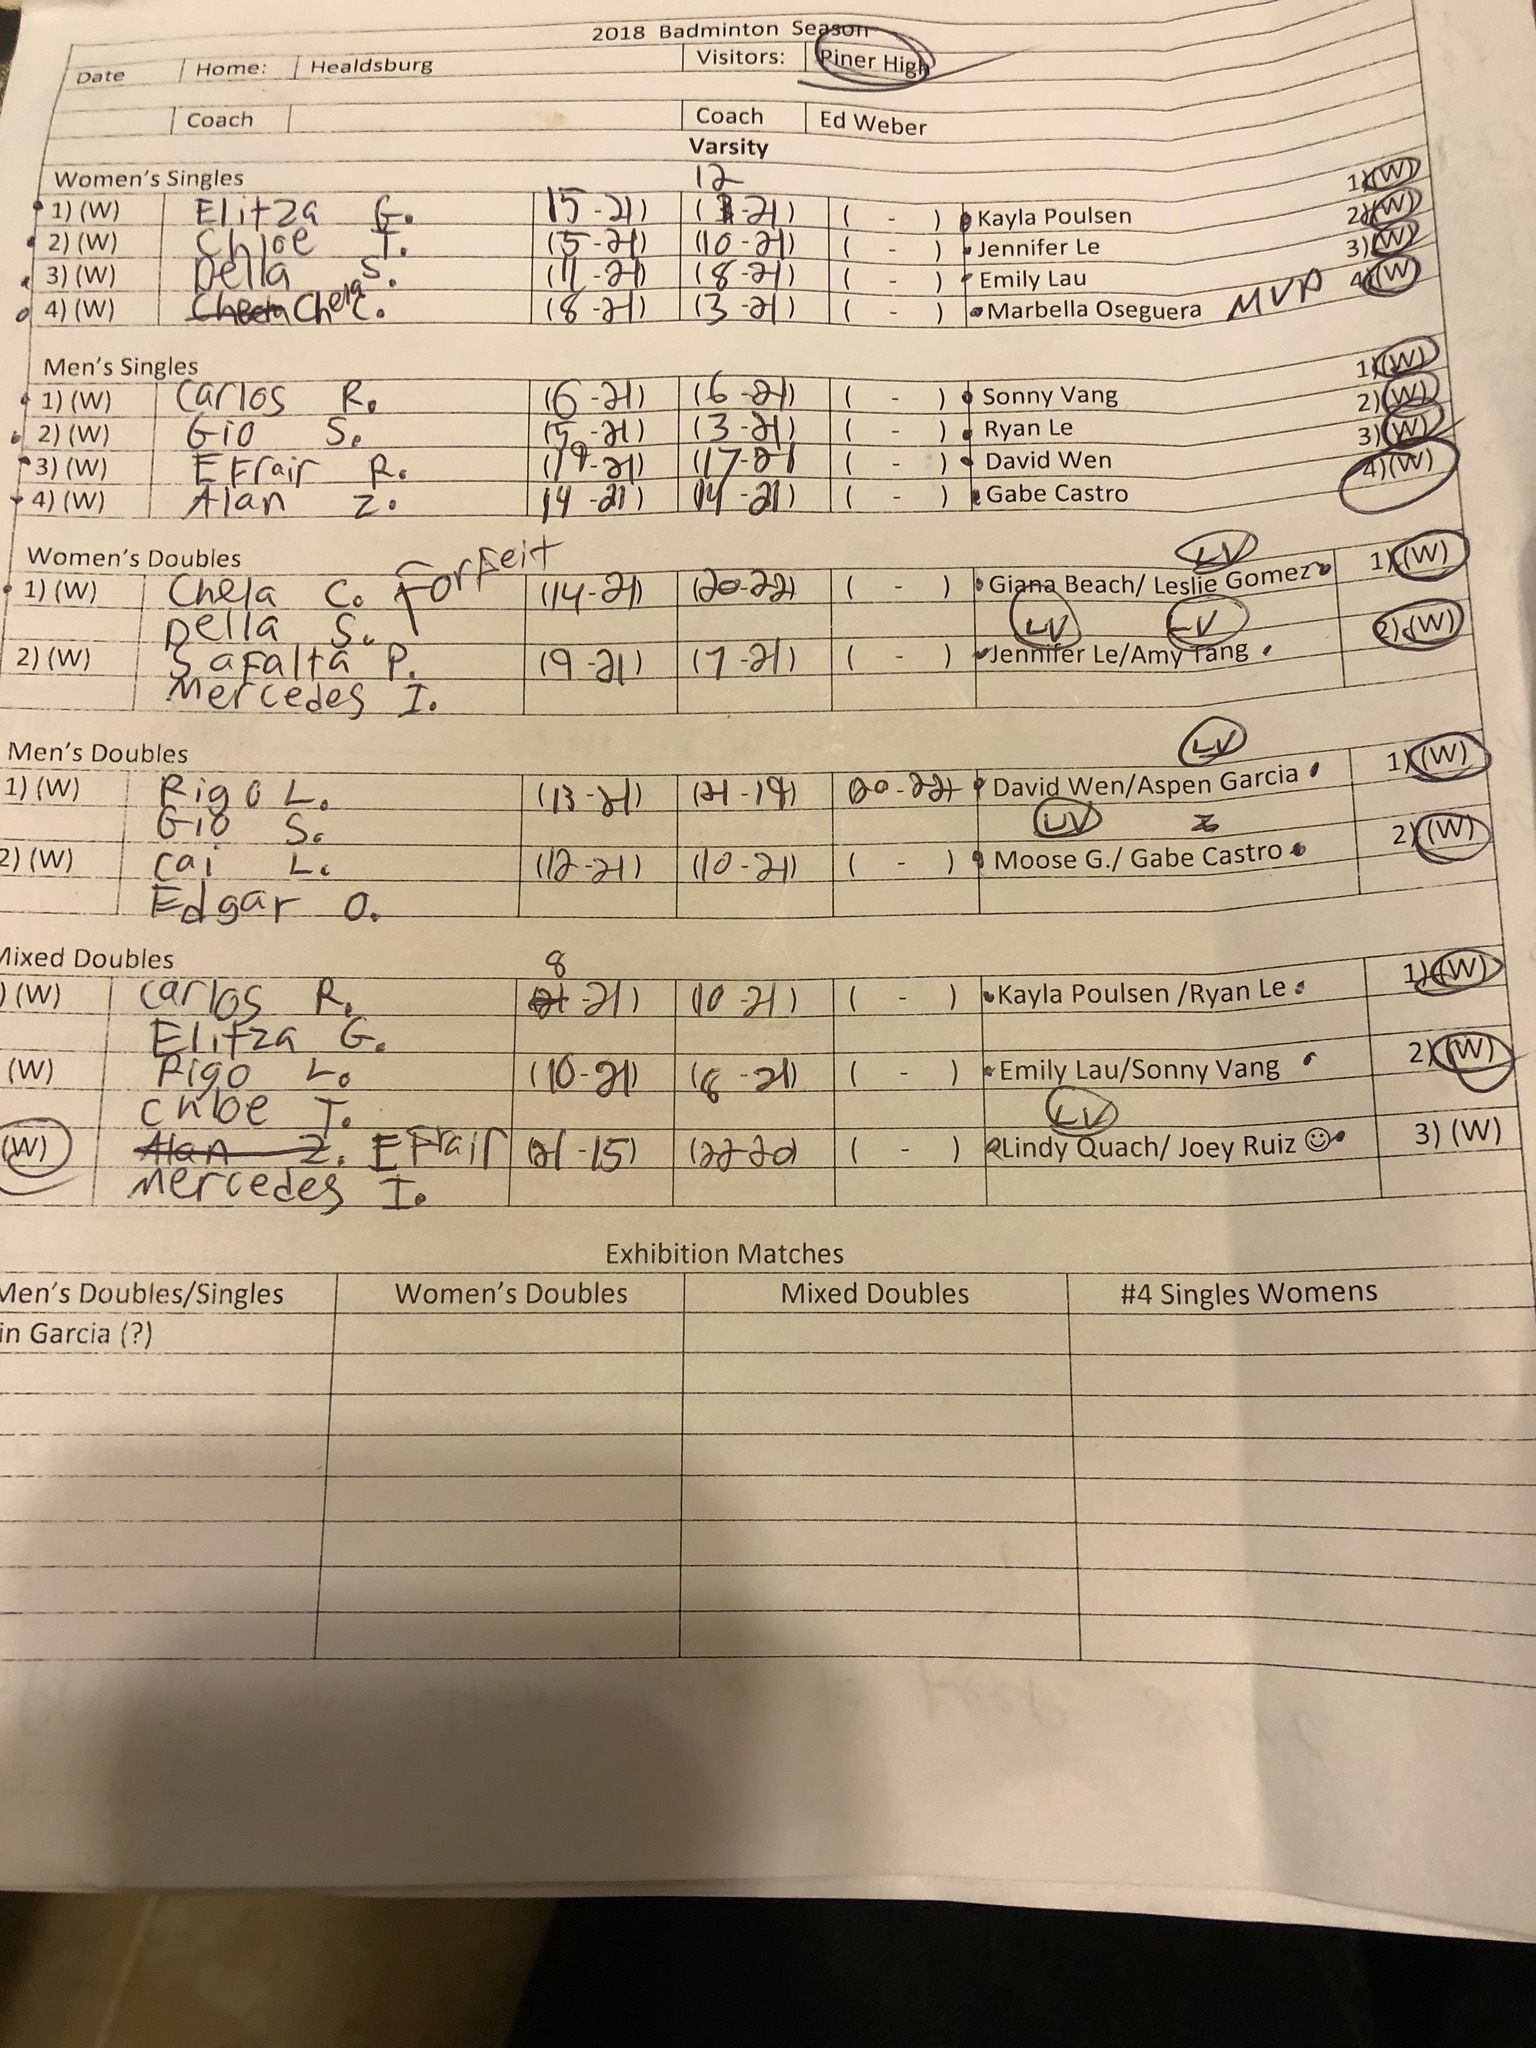 2018 Badminton Season
Date Home: Healdsburg Visitors: Piner High
Coach Coach Ed Weber
Varsity
Women's Singles 12 1) (W)
1) (W) Elitza G. (15-21) ( -21) ( - ) Kayla Poulsen 2) (W)
2) (W) Chloe T. (5-21) (10-21) ( - ) Jennifer Le 3) (W)
3) (W) Della S. (11-21) (8-21) ( - ) Emily Lau 4) (W)
4) (W) Chela C. (8-21) (3-21) ( - ) Marbella Oseguera MVP
Men's Singles 1) (W)
1) (W) Carlos R. (6-21) (6-21) ( - ) Sonny Vang 2) (W)
2) (W) Gio S. (5-21) (3-21) ( - ) Ryan Le 3) (W)
3) (W) EFrair R. (19-21) (17-21 ( - ) David Wen 4) (W)
4) (W) Alan Z. (14-21) (14-21) ( - ) Gabe Castro
Women's Doubles Forfeit LV
1) (W) Chela C. (14-21) (20-22) ( - ) Giana Beach/ Leslie Gomez 1) (W)
Della S. LV LV
2) (W) Safalta P. (9-21) (7-21) ( - ) Jennifer Le/Amy Tang 2) (W)
Mercedes I.
Men's Doubles LV
1) (W) Rigo L. (13-21) (21-19) 20-22 David Wen/Aspen Garcia 1) (W)
Gio S. LV
2) (W) Cai L. (12-21) (10-21) ( - ) Moose G./ Gabe Castro 2) (W)
Edgar O.
Mixed Doubles 8
) (W) Carlos R. 21-21) (10-21) ( - ) Kayla Poulsen /Ryan Le 1) (W)
Elitza G.
(W) Rigo L. (10-21) (8-21) ( - ) Emily Lau/Sonny Vang 2) (W)
Chloe T. LV
(W) Alan Z. EFrair (21-15) (22-20) ( - ) Lindy Quach/ Joey Ruiz ☺ 3) (W)
Mercedes I.
Exhibition Matches
Men's Doubles/Singles Women's Doubles Mixed Doubles #4 Singles Womens
in Garcia (?)